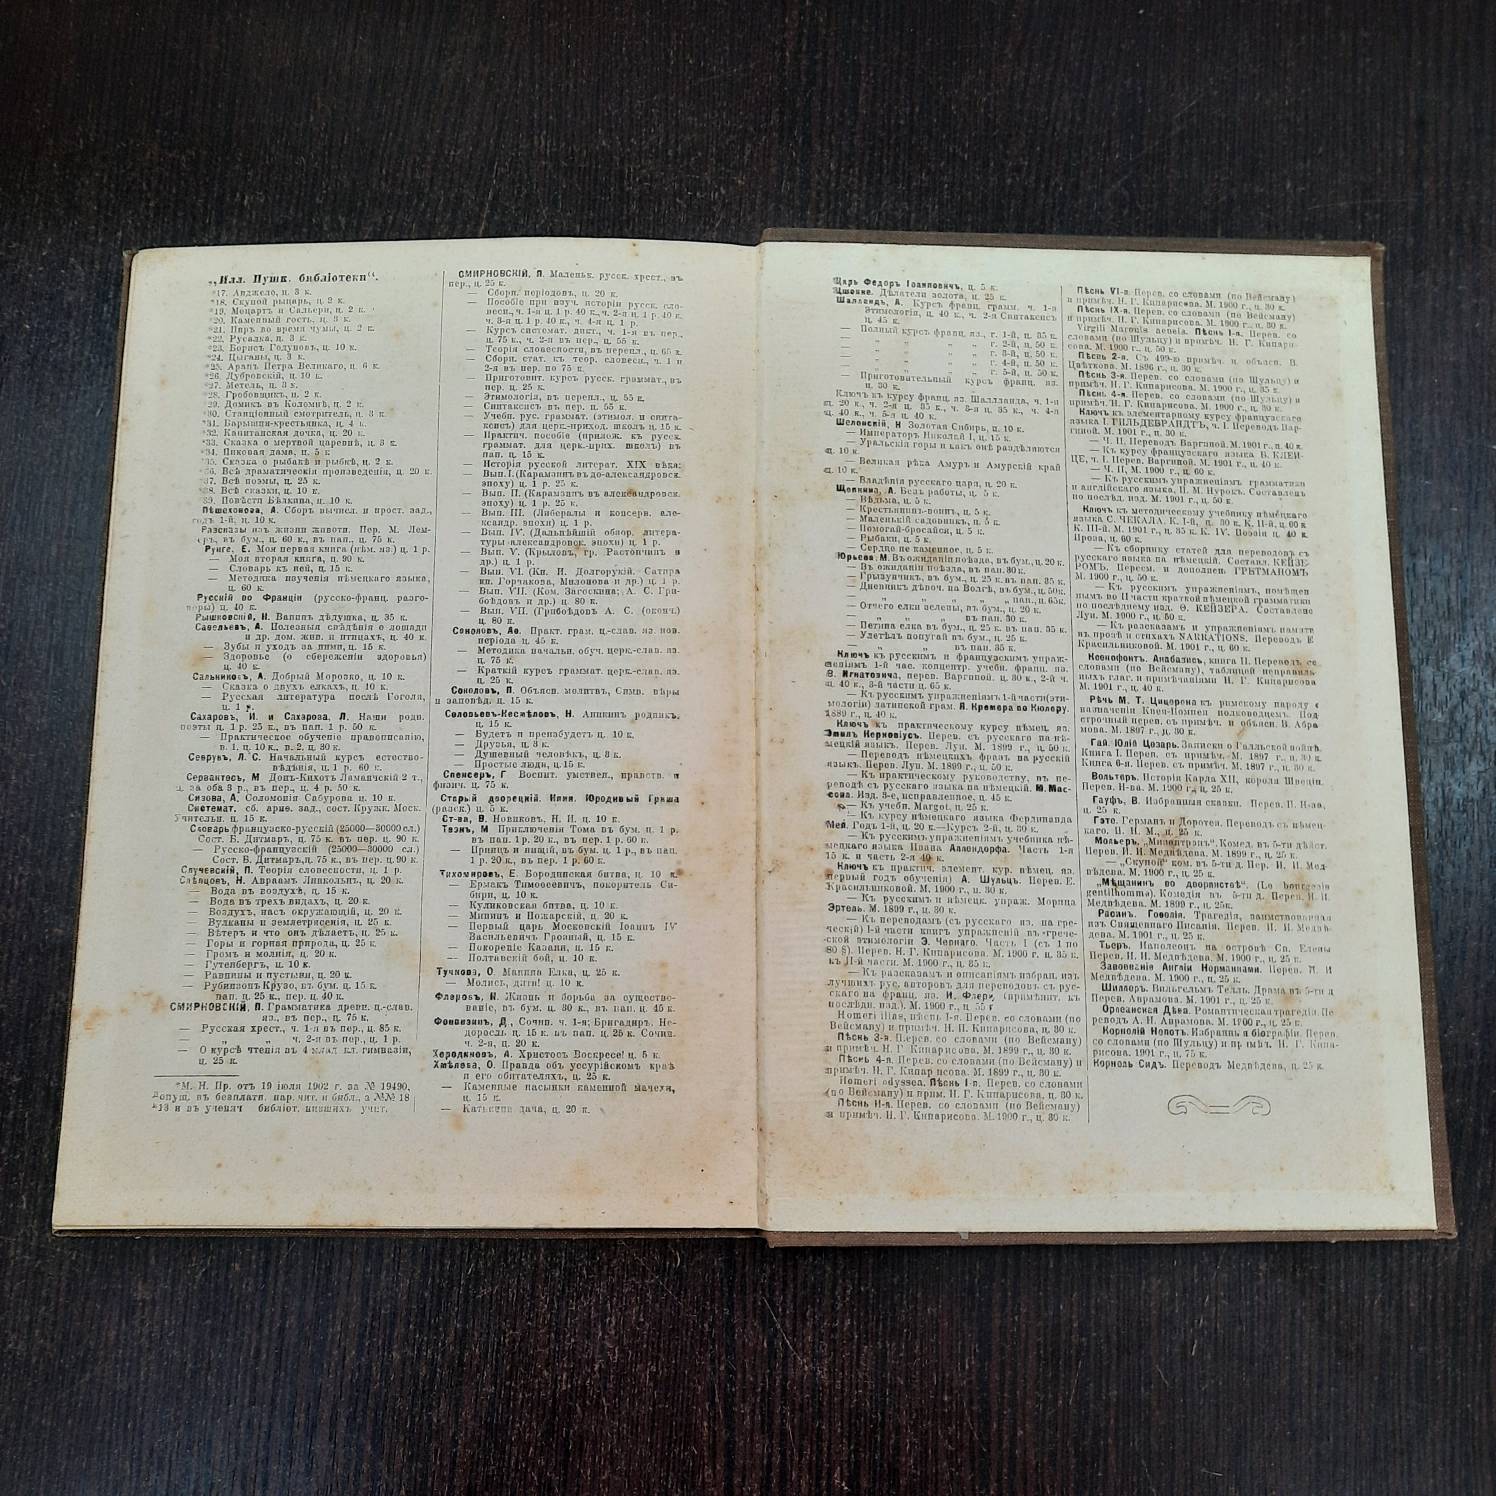 „Илл. Пушк. библіотеки“.
*17. Анджело, ц. 3 к.
*18. Скупой рыцарь, ц. 2 к.
*19. Моцартъ и Сальери, ц. 2 к.
*20. Каменный гость, ц. 3 к.
*21. Пиръ во время чумы, ц. 2 к.
*22. Русалка, ц. 3 к.
*23. Борисъ Годуновъ, ц. 10 к.
*24. Цыганы, ц. 3 к.
*25. Арапъ Петра Великаго, ц. 6 к.
*26. Дубровскій, ц. 10 к.
*27. Метель, ц. 3 к.
*28. Гробовщикъ, ц. 2 к.
*29. Домикъ въ Коломнѣ, ц. 2 к.
*30. Станціонный смотритель, ц. 3 к.
*31. Барышня-крестьянка, ц. 4 к.
*32. Капитанская дочка, ц. 20 к.
*33. Сказка о мертвой царевнѣ, ц. 3 к.
*34. Пиковая дама, ц. 5 к
*35. Сказка о рыбакѣ и рыбкѣ, ц. 2 к.
*36. Всѣ драматическія произведенія, ц. 20 к.
*37. Всѣ поэмы, ц. 25 к.
*38. Всѣ сказки, ц. 10 к.
*39. Повѣсти Бѣлкина, ц. 10 к.
Пѣшехонова, А. Сборъ вычисл. и прост. зад.,
годъ 1-й, ц. 10 к.
Разсказы изъ жизни животн. Пер. М. Лем-
въ бум., ц. 60 к., въ пап., ц. 75 к.
Рунге, Е. Моя первая книга (нѣм. яз.) ц. 1 р.
— Моя вторая книга, ц. 90 к.
— Словарь къ ней, ц. 15 к.
— Методика изученія нѣмецкаго языка,
ц. 60 к.
Русскій во Франціи (русско-франц. разго-
воры) ц. 40 к.
Рышковскій, Н. Ванинъ дѣдушка, ц. 35 к.
Савельевъ, А. Полезныя свѣдѣнія о лошади
и др. дом. жив. и птицахъ, ц. 40 к.
— Зубы и уходъ за ними, ц. 15 к.
— Здоровье (о сбереженіи здоровья)
ц. 40 к.
Сальниковъ, А. Добрый Морозко, ц. 10 к.
— Сказка о двухъ елкахъ, ц. 10 к.
— Русская литература послѣ Гоголя,
ц. 1 р.
Сахаровъ, И. и Сахарова, Л. Наши родн.
поэты ц. 1 р. 25 к., въ пап. 1 р. 50 к.
— Практическое обученіе правописанію,
в. 1, ц. 10 к., в. 2, ц. 30 к.
Севрукъ, Л. С. Начальный курсъ естество-
вѣдѣнія, ц. 1 р. 60 к.
Сервантесъ, М Донъ-Кихотъ Ламанчскій 2 т.,
ц. за оба 3 р., въ пер., ц. 4 р. 50 к.
Сизова, А. Соломонія Сабурова ц. 10 к.
Системат. сб. ариѳ. зад., сост. Кружк. Моск.
Учительн. ц. 15 к.
Словарь французско-русскій (25000—30000 сл.)
Сост. Б. Дитмаръ, ц. 75 к. въ пер. ц. 90 к.
— Русско-французскій (25000—30000 сл.)
Сост. Б. Дитмаръ, ц. 75 к., въ пер. ц. 90 к.
Случевскій, П. Теорія словесности, ц. 1 р.
Слѣпцовъ, Н. Авраамъ Линкольнъ, ц. 20 к.
— Вода въ воздухѣ, ц. 15 к.
— Вода въ трехъ видахъ, ц. 20 к.
— Воздухъ, насъ окружающій, ц. 20 к.
— Вулканы и землетрясенія, ц. 25 к.
— Вѣтеръ и что онъ дѣлаетъ, ц. 25 к.
— Горы и горная природа, ц. 25 к.
— Громъ и молнія, ц. 20 к.
— Гутенбергъ, ц. 10 к.
— Равнины и пустыни, ц. 20 к.
— Рубинзонъ Крузо, въ бум. ц. 15 к.
пап. ц. 25 к., пер. ц. 40 к.
СМИРНОВСКІЙ, П. Грамматика древн. ц.-слав.
яз., въ пер., ц. 75 к.
— Русская хрест., ч. 1-я въ пер., ц. 85 к.
— „ „ ч. 2-я въ пер., ц. 1 р.
— О курсѣ чтенія въ 4 млад. кл. гимназіи,
ц. 25 к.
*М. Н. Пр. отъ 19 іюля 1902 г. за № 19490,
допущ. въ безплатн. нар. чит. и библ., а №№ 18
*13 и въ ученич библіот. низшихъ учит.
СМИРНОВСКІЙ, П. Маленьк. русск. хрест., въ
пер., ц. 25 к.
— Сборн. періодовъ, ц. 20 к.
— Пособіе при изуч. исторіи русск. сло-
весн., ч. 1-я ц. 1 р. 40 к., ч. 2-я ц. 1 р. 40 к.,
ч. 3-я ц. 1 р. 40 к., ч. 4-я ц. 1 р.
— Курсъ систомат. дикт., ч. 1-я въ пер.,
ц. 75 к., ч. 2-я въ пер., ц. 55 к.
— Теорія словесности, въ перепл., ц. 65 к.
— Сборн. стат. къ теор. словесн., ч. 1 и
2-я въ пер. по 75 к.
— Приготовит. курсъ русск. граммат., въ
пер. ц. 25 к.
— Этимологія, въ перепл., ц. 55 к.
— Синтаксисъ въ пер. ц. 55 к.
— Учебн. рус. граммат. (этимол. и синта-
ксисъ) для церк.-приход. школъ ц. 15 к.
— Практич. пособіе (прилож. къ русск.
граммат. для церк.-прих. школъ) въ
пап. ц. 15 к.
— Исторія русской литерат. XIX вѣка:
— Вып. I. (Карамзинъ въ до-александровск.
эпоху) ц. 1 р. 25 к.
— Вып. II. (Карамзинъ въ александровск.
эпоху) ц. 1 р. 25 к.
— Вып. III. (Либералы и консерв. але-
ксандр. эпохи) ц. 1 р.
— Вып. IV. (Дальнѣйшій обзор. литера-
туры александровск. эпохи) ц. 1 р.
— Вып. V. (Крыловъ, гр. Растопчинъ и
др.) ц. 1 р.
— Вып. VI. (Кн. И. Долгорукій. Сатира
кн. Горчакова, Милонова и др.) ц. 1 р.
— Вып. VII. (Ком. Загоскина; А. С. Гри-
боѣдовъ и др.) ц. 80 к.
— Вып. VII. (Грибоѣдовъ А. С. (оконч.)
ц. 80 к.
Соколовъ, Аѳ. Практ. грам. ц.-слав. яз. нов.
періода ц. 45 к.
— Методика начальн. обуч. церк.-слав. яз.
ц. 75 к.
— Краткій курсъ граммат. церк.-слав. яз.
ц. 25 к.
Соколовъ, П. Объясн. молитвъ, Симв. вѣры
и заповѣд. ц. 15 к.
Соловьевъ-Несмѣловъ, Н. Аникинъ родникъ,
ц. 15 к.
— Будетъ и преизбудетъ ц. 10 к.
— Друзья, ц. 3 к.
— Душевный человѣкъ, ц. 3 к.
— Простые люди, ц. 15 к.
Спенсеръ, Г Воспит. умствен., нравств. и
физич. ц. 75 к.
Старый дворецкій. Няня. Юродивый Гриша
(разск.) ц. 5 к.
Ст-ва, В. Новиковъ, Н. И. ц. 10 к.
Твэнъ, М Приключенія Тома въ бум. ц. 1 р.
въ пап. 1 р. 20 к., въ пер. 1 р. 60 к.
— Принцъ и нищій, въ бум. ц. 1 р., въ пап.
1 р. 20 к., въ пер. 1 р. 60 к.
Тихомировъ, Е. Бородинская битва, ц. 10 к.
— Ермакъ Тимоѳеевичъ, покоритель Си-
бири, ц. 10 к.
— Куликовская битва, ц. 10 к.
— Мининъ и Пожарскій, ц. 20 к.
— Первый царь Московскій Іоаннъ IV
Васильевичъ Грозный, ц. 15 к.
— Покореніе Казани, ц. 15 к.
— Полтавскій бой, ц. 10 к.
Тучкова, О Манина Елка, ц. 25 к.
— Молись, дитя! ц. 10 к.
Флеровъ, К. Жизнь и борьба за существо-
ваніе, въ бум. ц. 30 к., въ пап. ц. 45 к.
Фонвизинъ, Д., Сочин. ч. 1-я; Бригадиръ. Не-
доросль ц. 15 к. въ пап. ц. 25 к. Сочин.
ч. 2-я, ц. 20 к.
Херодиновъ, А. Христосъ Воскресе! ц. 5 к.
Хмѣлева, О. Правда объ уссурійскомъ краѣ
и его обитателяхъ, ц. 25 к.
— Каменные пасынки каменной мачехи,
ц. 15 к.
— Катькина дача, ц. 20 к.
Царь Федоръ Іоанновичъ, ц. 5 к.
Цшокке. Дѣлатели золота, ц. 25 к.
Шалландъ, А. Курсъ франц. грамм. ч. 1-я
Этимологія, ц. 40 к., ч. 2-я Синтаксисъ
ц. 45 к.
— Полный курсъ франц. яз., г. 1-й, ц. 35 к.
— „ „ „ „ г. 2-й, ц. 50 к.
— „ „ „ „ г. 3-й, ц. 50 к.
— „ „ „ „ г. 4-й, ц. 50 к.
— „ „ „ „ г. 5-й, ц. 50 к.
— Приготовительный курсъ франц. яз.
ц. 30 к.
Ключъ къ курсу франц. яз. Шалланда, ч. 1-я
ц. 20 к., ч. 2-я ц. 35 к., ч. 3-я ц. 35 к., ч. 4-я
ц. 40 к., ч. 5-я ц. 40 к.
Шелонскій, Н Золотая Сибирь, ц. 10 к.
— Императоръ Николай I, ц. 15 к.
— Уральскія горы и какъ онѣ раздѣляются
ц. 10 к.
— Великая рѣка Амуръ и Амурскій край
ц. 10 к.
— Владѣнія русскаго царя, ц. 20 к.
Щепкина, А. Безъ работы, ц. 5 к.
— Вѣдьма, ц. 5 к.
— Крестьянинъ-воинъ, ц. 5 к.
— Маленькій садовникъ, ц. 5 к.
— Помогай-бросайся, ц. 5 к.
— Рыбаки, ц. 5 к.
— Сердце не каменное, ц. 5 к.
Юрьева, М. Въ ожиданіи поѣзда, въ бум., ц. 20 к.
— Въ ожиданіи поѣзда, въ пап. 30 к.
— Грызунчикъ, въ бум., ц. 25 к. въ пап. 35 к.
— Дневникъ дѣвоч. на Волгѣ, въ бум., ц. 50к.
— „ „ „ „ пап., ц. 65к.
— Отчего елки зелены, въ бум., ц. 20 к.
— „ „ „ въ пап. 30 к.
— Петина елка въ бум., ц. 25 к. въ пап. 35 к.
— Улетѣлъ попугай въ бум., ц. 25 к.
— „ „ въ пап. 35 к.
Ключъ къ русскимъ и французскимъ упраж-
неніямъ 1-й час. концентр. учебн. франц. яз.
В. Игнатовича, перев. Варгиной. ц. 30 к., 2-й ч.
ц. 40 к., 3-й части ц. 65 к.
— Къ русскимъ упражненіямъ 1-й части (эти-
мологіи) латинской грам. Я. Кремера по Кюлеру.
1899 г., ц. 40 к.
Ключъ къ практическому курсу нѣмец. яз.
Эмилъ Керковіусъ. Перев. съ русскаго на нѣ-
мецкій языкъ. Перев. Луи. М. 1899 г., ц. 50 к.
— Переводъ нѣмецкихъ фразъ на русскій
языкъ. Перев. Луи. М. 1899 г., ц. 50 к.
— Къ практическому руководству, въ пе-
реводѣ съ русскаго на нѣмецкій. М. Мас-
сона. Изд. 3-е, исправленное, ц. 45 к.
— Къ учебн. Margot, ц. 25 к.
— Къ курсу нѣмецкаго языка Фердинанда
Мей. Годъ 1-й, ц. 20 к.—Курсъ 2-й, ц. 30 к.
— Къ русскимъ упражненіямъ учебника нѣ-
мецкаго языка Ивана Аллендорфа. Часть 1-я
15 к. и часть 2-я 40 к.
Ключъ къ практич. элемент. кур. нѣмец. яз.
(первый годъ обученія) А. Шульцъ. Перев. Е.
Красильниковой. М. 1900 г., ц. 30 к.
— Къ русскимъ и нѣмецк. упраж. Морица
Эртель. М. 1899 г., ц. 30 к.
— Къ переводамъ (съ русскаго яз. на гре-
ческій) 1-й части книгъ упражненій въ грече-
ской этимологіи Э. Чернаго. Часть I (съ 1 по
80 §). Перев. Н. Г. Кипарисова. М. 1900 г. ц. 35 к.
къ II-й части. М. 1900 г., ц. 35 к.
— Къ разсказамъ и описаніямъ избран. изъ
лучшихъ рус. авторовъ для переводовъ съ рус-
скаго на франц. яз. И. Флери, (примѣнит. къ
послѣдн. изд.). М. 1900 г., ц. 55 к
Homeri ilias, пѣснь 1-я. Перев. со словами (по
Вейсману) и примѣч. Н. Г. Кипарисова, ц. 30 к.
Пѣснь 3-я. Перев. со словами (по Вейсману)
и примѣч. Н. Г. Кипарисова. М. 1899 г., ц. 30 к.
Пѣснь 4-я. Перев. со словами (по Вейсману) и
примѣч. Н. Г. Кипарисова. М. 1900 г., ц. 30 к.
Homeri odyssea. Пѣснь 1-я. Перев. со словами
(по Вейсману) и прим. Н. Г. Кипарисова, ц. 30 к.
Пѣснь II-я. Перев. со словами (по Вейсману)
и примѣч. Н. Г. Кипарисова. М. 1900 г., ц. 30 к.
Пѣснь VI-я. Перев. со словами (по Вейсману)
и примѣч. Н. Г. Кипарисова. М. 1900 г., ц. 30 к.
Пѣснь IX-я. Перев. со словами (по Вейсману)
и примѣч. Н. Г. Кипарисова. М. 1900 г., ц. 30 к.
Virgili Maronis aeneia. Пѣснь 1-я. Перев. со
словами (по Вейсману) и примѣч. Н. Г. Кипари-
сова. М. 1900 г., ц. 50 к.
Пѣснь 2-я. Съ 499-ю примѣч. и объясн. В.
Цвѣткова. М. 1896 г., ц. 30 к.
Пѣснь 3-я. Перев. со словами (по Шульцу) и
примѣч. Н. Г. Кипарисова. М. 1900 г., ц. 35 к.
Пѣснь 4-я. Перев. со словами (по Шульцу) и
примѣч. Н. Г. Кипарисова. М. 1900 г., ц. 30 к.
Ключъ къ элементарному курсу французскаго
языка I. ГИЛЬДЕБРАНДТЪ, ч. I. Переводъ Вар-
гиной. М. 1901 г., ц. 30 к.
— Ч. II, Переводъ Варгиной. М. 1901 г., ц. 40 к.
— Къ курсу французскаго языка Б. КЛЕЙ-
ЦЕ, ч. I. Перев. Варгиной. М. 1901 г., ц. 40 к.
— Ч. II, М. 1900 г., ц. 60 к.
— Къ русскимъ упражненіямъ грамматики
и англійскаго языка, П. М. Нурокъ. Составлено
по послѣд. изд. М. 1901 г., ц. 50 к.
Ключъ къ методическому учебнику нѣмецкаго
языка С. ЧЕКАЛА. К. I-й, ц. 30 к. К. II-й, ц. 60 к
К. III-й. М. 1901 г., ц. 35 к. К. IV. Поэзія ц. 40 к.
Проза, ц. 60 к.
— Къ сборнику статей для переводовъ съ
русскаго языка на нѣмецкій. Составл. КЕЙЗЕ-
РОМЪ. Пересм. и дополнен. ГРЕТМАНОМЪ
М. 1900 г., ц. 50 к.
— Къ русскимъ упражненіямъ, помѣщен
нымъ во II части краткой нѣмецкой грамматики
по послѣднему изд. Ѳ. КЕЙЗЕРА. Составлено
Луи. М. 1900 г., ц. 50 к.
— Къ разсказамъ и упражненіямъ памяти
въ прозѣ и стихахъ NARRATIONS. Переводъ Е
Красильниковой. М. 1901 г., ц. 60 к.
Ксенофонтъ. Анабазисъ, книга II. Переводъ со
словами (по Вейсману), таблицей неправиль-
ныхъ глаг. и примѣчаніями Н. Г. Кипарисова
М. 1901 г., ц. 40 к.
Рѣчь М. Т. Цицерона къ римскому народу о
назначеніи Кнея-Помпея полководцемъ. Под-
строчный перев. съ примѣч. и объясн. В. Абра-
мова. М. 1897 г., ц. 30 к.
Гай Юлій Цезарь. Записки о Галльской войнѣ.
Книга I. Перев. съ примѣч. М. 1897 г., ц. 30 к.
Книга 6-я. Перев. съ примѣч. М. 1897 г., ц. 30 к.
Вольтеръ. Исторія Карла XII, короля Швеціи.
Перев. Н-ва. М. 1900 г., ц. 25 к.
Гауфъ, В. Избранныя сказки. Перев. П. Н-ва,
ц. 25 к.
Гэте. Германъ и Доротея. Переводъ съ нѣмец-
каго. И. Н. М., ц. 25 к.
Мольеръ. „Мизантропъ“. Комед. въ 5-ти дѣйст.
Перев. И. И. Медвѣдева. М. 1899 г., ц. 25 к.
— „Скупой“ ком. въ 5-ти д. Пер. И. И. Мед-
вѣдева. М. 1900 г., ц. 25 к.
„Мѣщанинъ во дворянствѣ“. (Le bourgeois
gentilhomme). Комедія въ 5-ти д. Перев. И. И.
Медвѣдева. М. 1899 г., ц. 25к.
Расинъ. Гоѳолія. Трагедія, заимствованная
изъ Священнаго Писанія. Перев. И. И. Медвѣ-
дева. М. 1901 г., ц. 25 к.
Тьеръ. Наполеонъ на островѣ Св. Елены
Перев. И. И. Медвѣдева. М. 1900 г., ц. 25 к.
Завоеваніе Англіи Норманнами. Перев. И. И
Медвѣдева. М. 1900 г., ц. 25 к.
Шиллеръ. Вильгельмъ Телль. Драма въ 5-ти д
Перев. Аврамова. М. 1901 г., ц. 25 к.
Орлеанская Дѣва. Романтическая трагедія. Пе-
реводъ А. И. Аврамова. М. 1900 г., ц. 25 к.
Корнелій Непотъ. Избранныя біографіи. Перев.
со словами (по Шульцу) и примѣч. Н. Г. Кипа-
рисова. 1901 г., ц. 75 к.
Корнель Сидъ. Переводъ Медвѣдева, ц. 25 к.